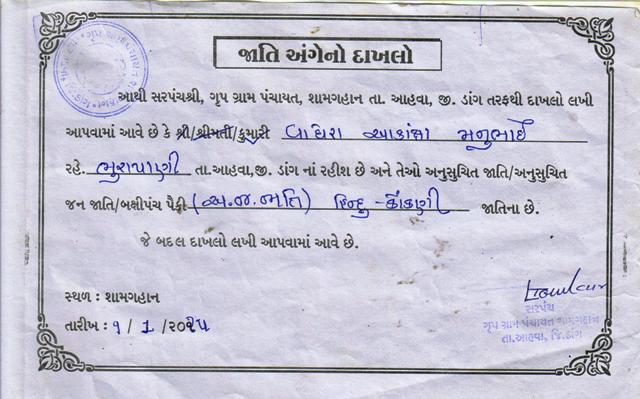 જાતિ અંગેનો દાખલો
આથી સરપંચશ્રી, ગૃપ ગ્રામ પંચાયત, શામગહાન તા. આહવા, જી. ડાંગ તરફથી દાખલો લખી
આપવામાં આવે છે કે શ્રી/શ્રીમતી/કુમારી વાઘેરા આકાંક્ષા મનુભાઈ
રહે. ભુરાપાણી તા.આહવા,જી. ડાંગ નાં રહીશ છે અને તેઓ અનુસુચિત જાતિ/અનુસુચિત
જન જાતિ/બક્ષીપંચ પૈકી (અ.જ.જાતિ) હિન્દુ - કોંકણી જાતિના છે.
જે બદલ દાખલો લખી આપવામાં આવે છે.
સ્થળ : શામગહાન
તારીખ : ૧ / 1 /૨૦૨૫
સરપંચ
ગૃપ ગ્રામ પંચાયત શામગહાન
તા.આહવા, જિ.ડાંગ